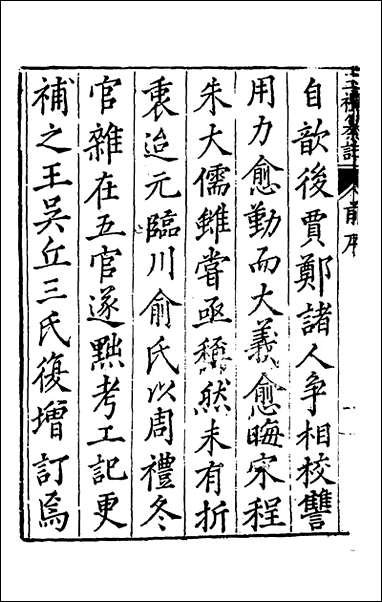 自歆後賈鄭諸人争相校讐
用力愈勤而大義愈晦宋程
朱大儒雖嘗亟稱然未有折
衷迨元臨川俞氏以周禮冬
官雜在五官遂黜考工記更
補之王吳丘三氏復增訂焉